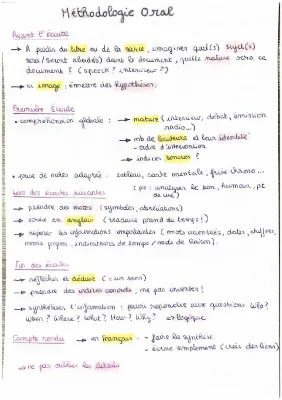 Méthodologie Oral
Avant l'écoute
→ À partir du titre ou de la source, imaginer quel(s) sujet(s)
sera/seront abordé(s) dans le document, quelle nature sera ce
document ? (speech ? interview ?)
→ si image : émettre des hypothèses.
Première Écoute
• compréhension globale : → nature (interview, débat, émission
radio...)
→ nb de locuteurs et leur identité
- ordre d'intervention
→ indices sonores ?
• prise de notes adaptée : tableau, carte mentale, frise chrono...
(po : analyser le ton, humour, pt
de vue)
Lors des écoutes suivantes
→ prendre des notes (symboles, abréviations)
→ écrire en anglais (traduire prend du temps !)
→ repérer les informations importantes (mots accentués, dates, chiffres,
noms propres, indicateurs de temps / mots de liaison).
Fin des écoutes
→ réfléchir et déduire (: un sens)
→ prendre des indices concrets, ne pas inventer !
→ synthétiser l'information : pouvoir répondre aux questions Who?
When ? Where ? What ? How ? Why ? ⇒ logique
Compte rendu → en français - faire la synthèse
- écrire simplement (créer des liens)
→ ne pas oublier les détails